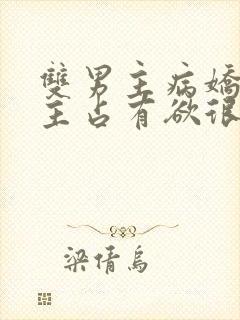 雙男主病嬌
主占有欲很
梁倩烏